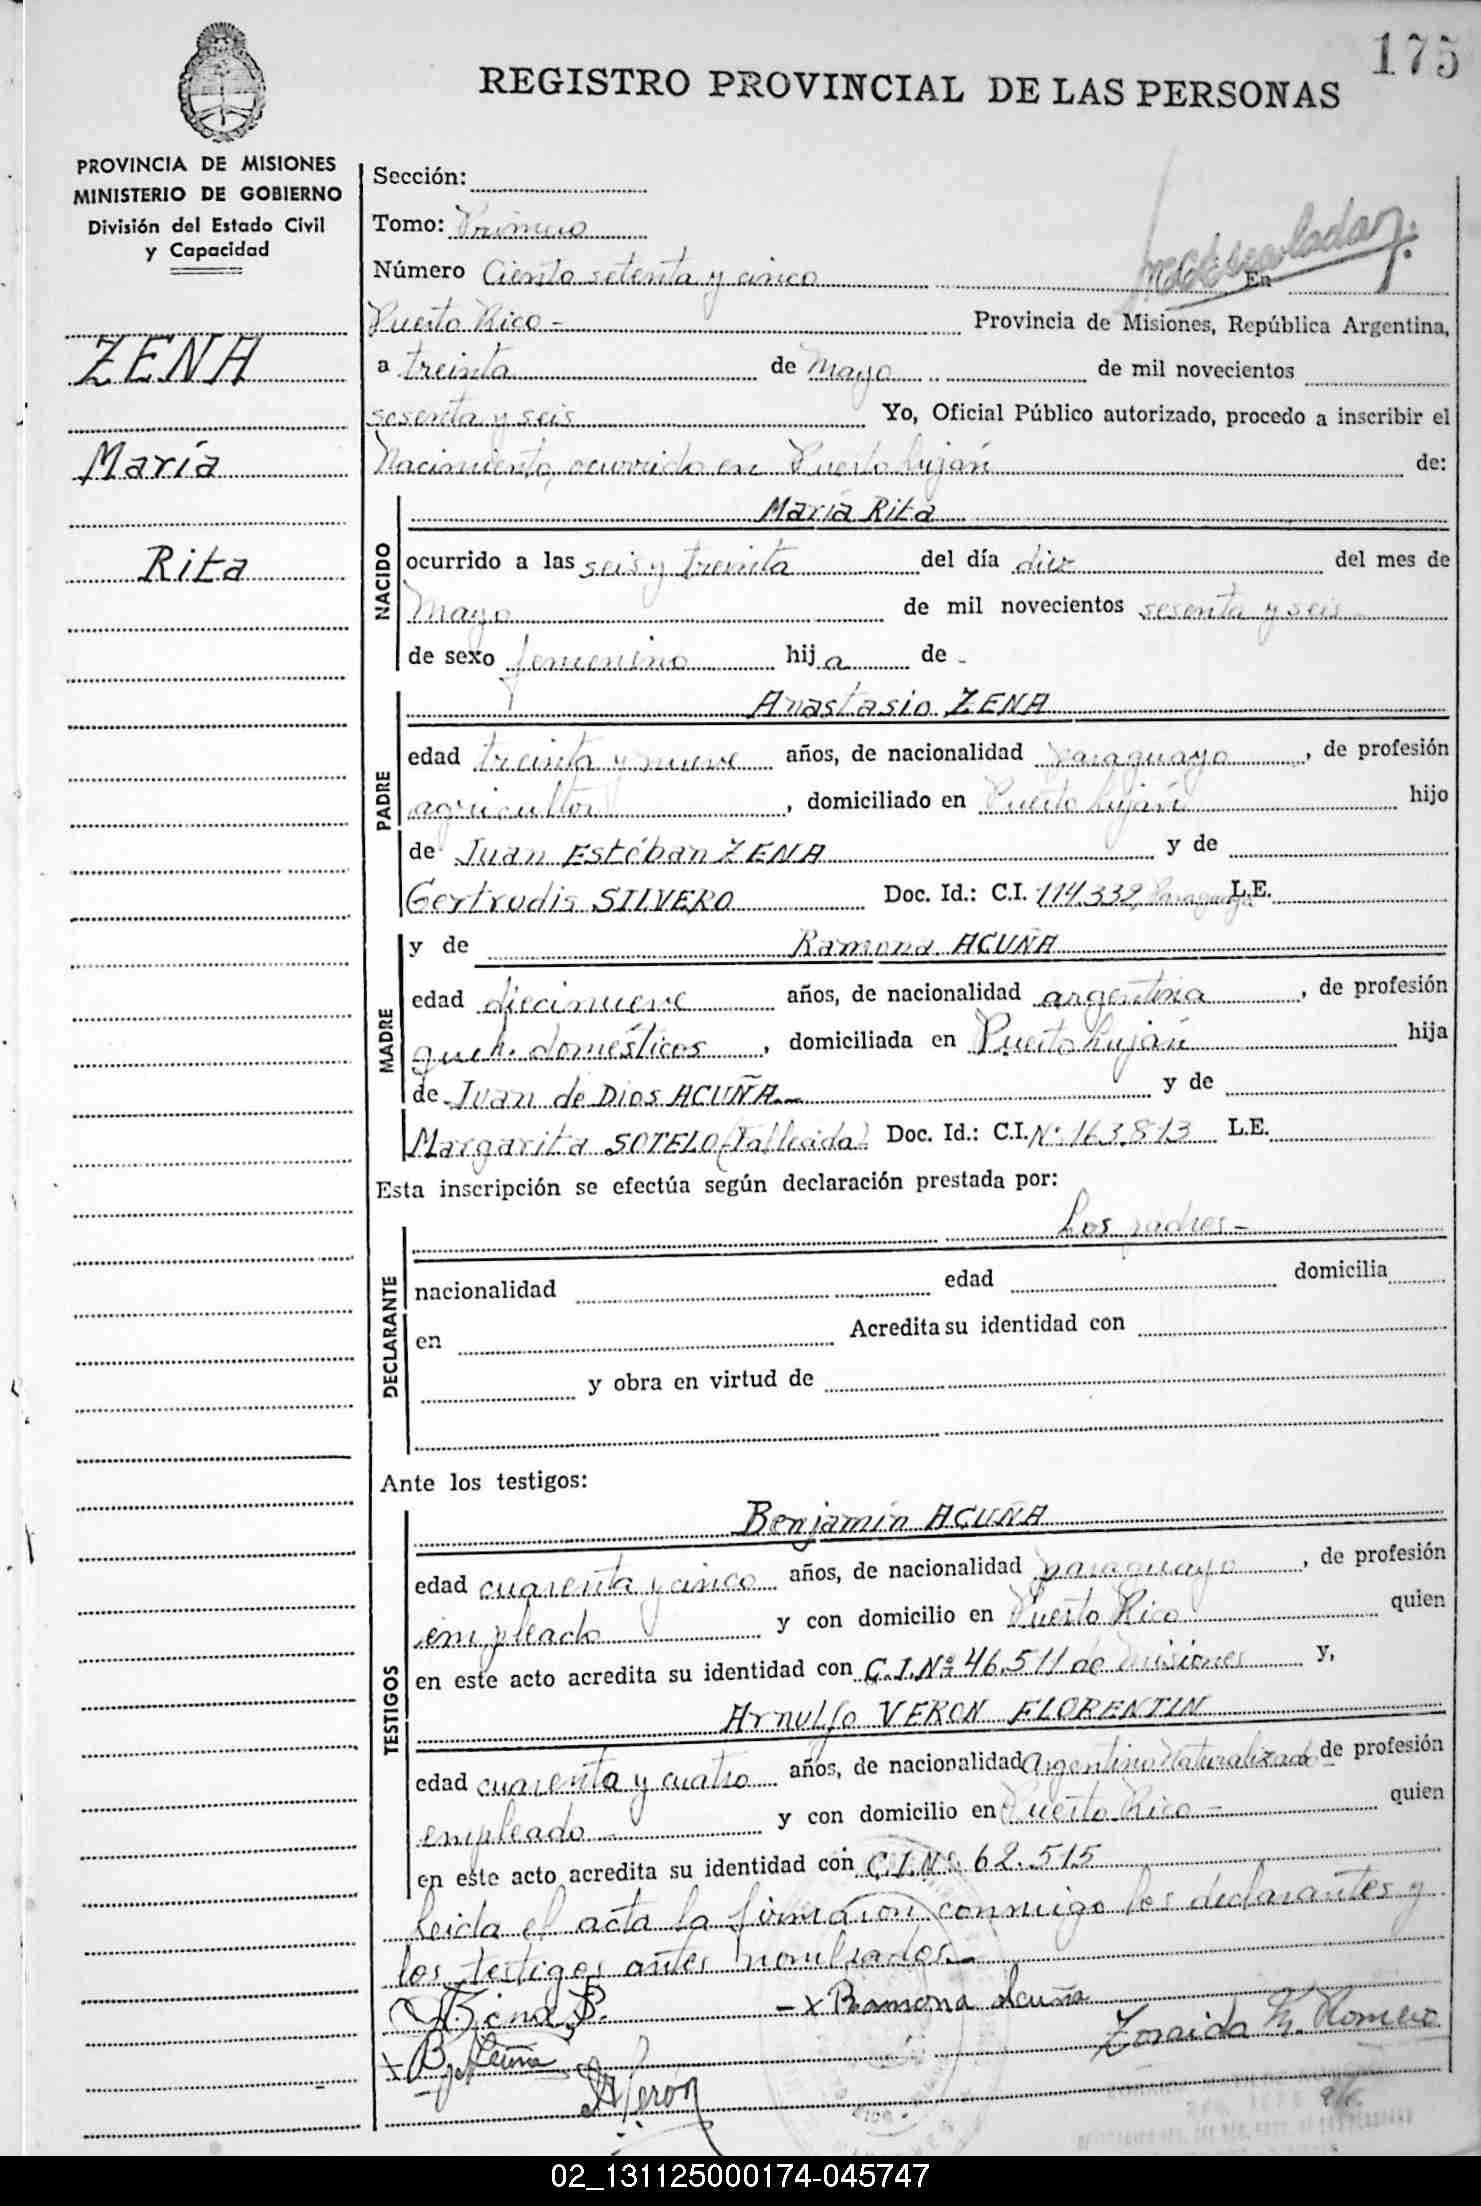 175
REGISTRO PROVINCIAL DE LAS PERSONAS
PROVINCIA DE MISIONES
MINISTERIO DE GOBIERNO
División del Estado Civil
y Capacidad
ZENA
María
Rita
Sección:
Tomo: Primero
Número Ciento setenta y cinco En
Puerto Rico - Provincia de Misiones, República Argentina,
a treinta de Mayo de mil novecientos
sesenta y seis Yo, Oficial Público autorizado, procedo a inscribir el
Nacimiento, ocurrido en Puerto Luján de:
NACIDO
María Rita
ocurrido a las seis y treinta del día diez del mes de
Mayo de mil novecientos sesenta y seis
de sexo femenino hija de -
PADRE
Anastasio ZENA
edad treinta y nueve años, de nacionalidad paraguayo, de profesión
agricultor, domiciliado en Puerto Luján hijo
de Juan Estéban ZENA y de
Gertrudis SILVERO Doc. Id.: C.I. 114.332, Paraguaya L.E.
MADRE
y de Ramona ACUÑA
edad diecinueve años, de nacionalidad argentina, de profesión
queh. domésticos, domiciliada en Puerto Luján hija
de Juan de Dios ACUÑA y de
Margarita SOTELO (Fallecida) Doc. Id.: C.I. Nº 163.813 L.E.
Esta inscripción se efectúa según declaración prestada por:
DECLARANTE
Los padres -
nacionalidad edad domicilia
en Acredita su identidad con
y obra en virtud de
Ante los testigos:
TESTIGOS
Benjamín ACUÑA
edad cuarenta y cinco años, de nacionalidad paraguayo, de profesión
empleado y con domicilio en Puerto Rico quien
en este acto acredita su identidad con C.I.Nº 46.511 de Misiones y,
Arnulfo VERON FLORENTIN
edad cuarenta y cuatro años, de nacionalidad Argentino Naturalizado de profesión
empleado y con domicilio en Puerto Rico - quien
en este acto acredita su identidad con C.I.Nº 62.515
Leida el acta la firmaron conmigo los declarantes y
los testigos antes nombrados.-
- x Ramona Acuña
x B. Acuña
Zoraida K. Romero
A Veron
02_131125000174-045747